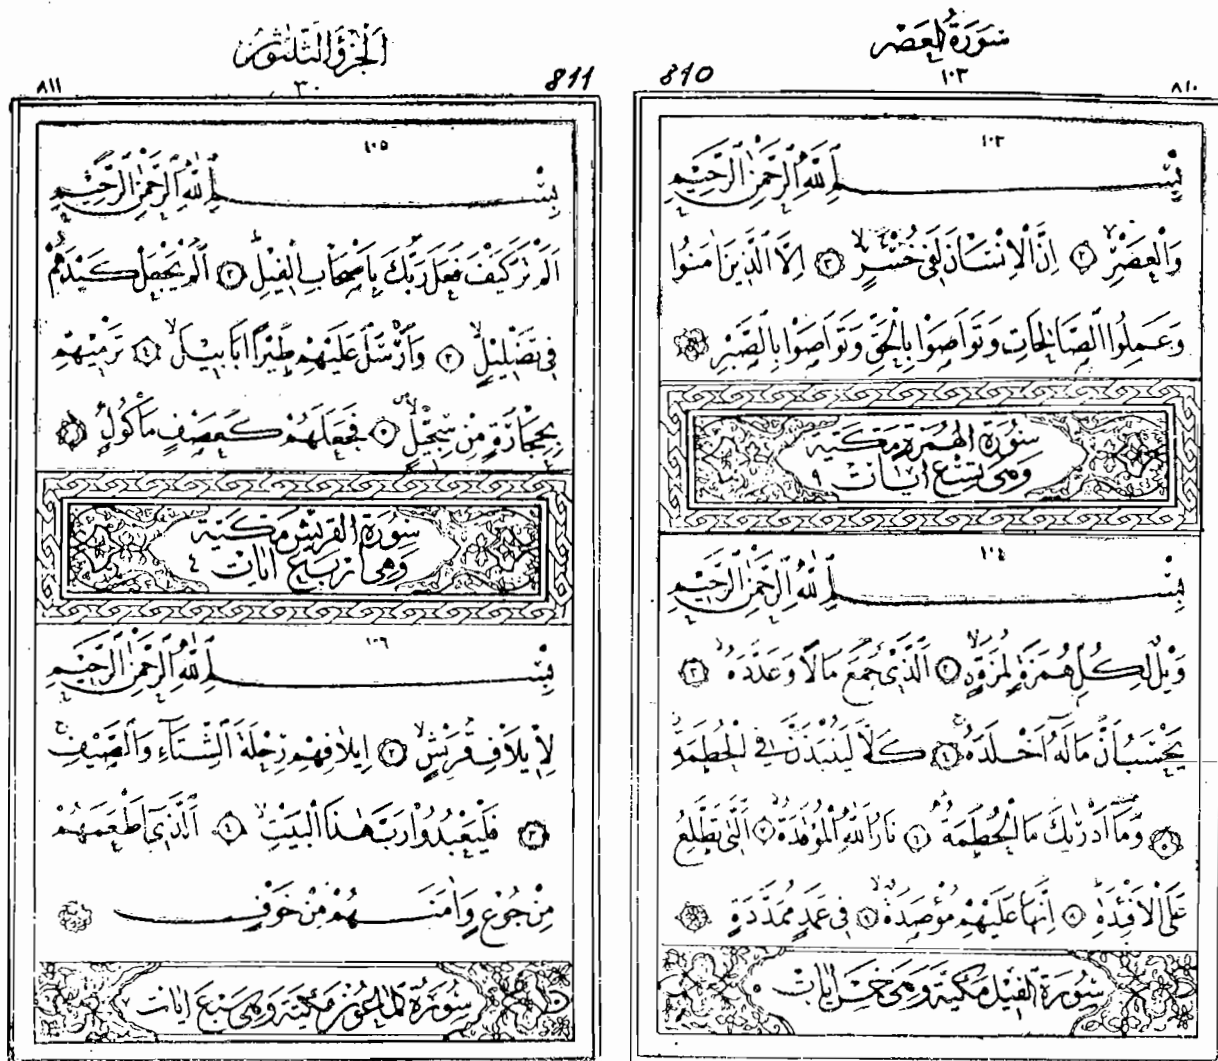 سورة العصر
٨١٠ ١٠٣ 810
١٠٣
بسم الله الرحمن الرحيم
والعصر ٢ ان الانسان لفى خسر ٣ الا الذين امنوا
وعملوا الصالحات وتواصوا بالحق وتواصوا بالصبر
سورة الهمزة مكية
وهى تسع ايات ٩
١٠٤
بسم الله الرحمن الرحيم
ويل لكل همزة لمزة ٢ الذى جمع مالا وعدده ٣
يحسب ان ماله اخلده ٤ كلا لينبذن فى الحطمة
٥ وما ادريك ما الحطمة ٦ نار الله الموقدة ٧ التى تطلع
على الافئدة ٨ انها عليهم مؤصدة ٩ فى عمد ممددة
سورة الفيل مكية وهى خمس ايات ٥
الجزؤ الثلثون
811 ٣٠ ٨١١
١٠٥
بسم الله الرحمن الرحيم
الم تر كيف فعل ربك باصحاب الفيل ٢ الم يجعل كيدهم
فى تضليل ٣ وارسل عليهم طيرا ابابيل ٤ ترميهم
بحجارة من سجيل ٥ فجعلهم كعصف مأكول
سورة القريش مكية
وهى اربع ايات ٤
١٠٦
بسم الله الرحمن الرحيم
لايلاف قريش ٢ ايلافهم رحلة الشتاء والصيف
٣ فليعبدوا رب هذا البيت ٤ الذى اطعمهم
من جوع وامنهم من خوف
سورة الماعون مكية وهى سبع ايات